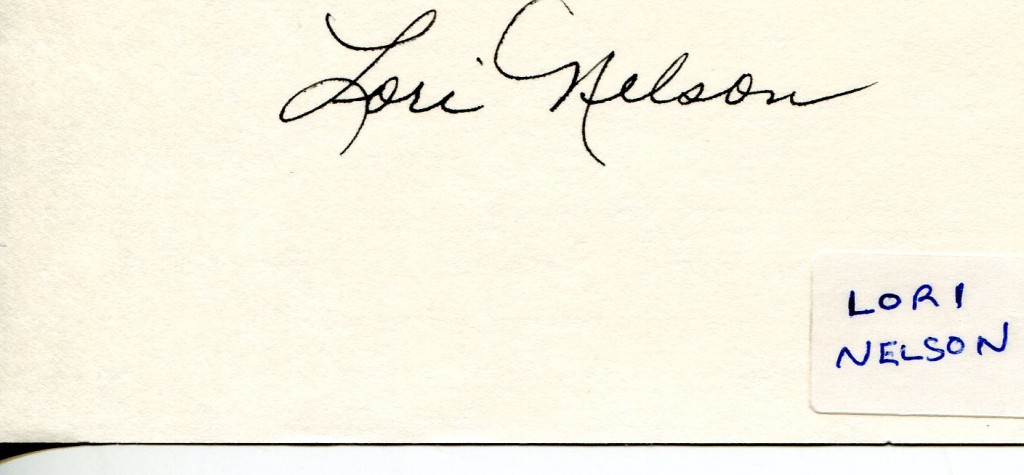 Lori Nelson
LORI
NELSON